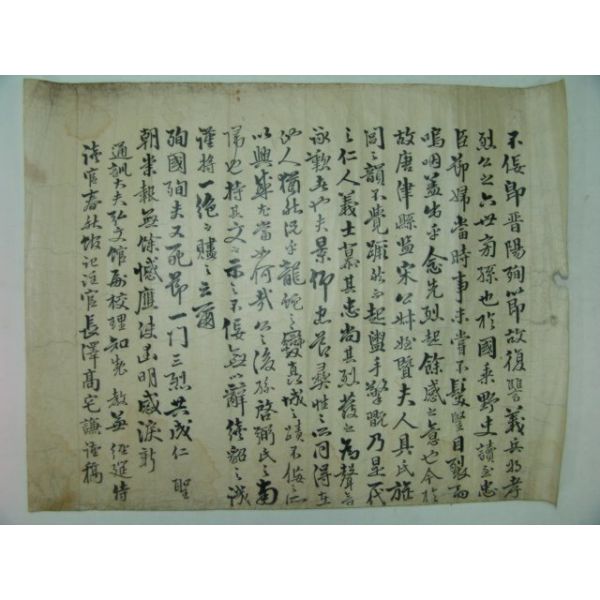 不佞卽晋陽殉節故復讐義兵將孝
烈公之六世旁孫也於國乘野史讀至忠
臣節婦當時事未嘗不髮竪目裂而
嗚咽盖出乎念先烈起餘感之意也今於
故唐津縣監宋公姊姪暨夫人具氏旌
閭之韻不覺蹶然而起盥手擎翫乃是一代
之仁人義士慕其忠尚其烈發之爲聲音
詠歎者也夫景仰忠節彛性之所同得在
他人猶然况乎龍蛇之變眞城之蹟不佞之所
以興感尤當如何哉公之後孫啓弼氏之南
歸也持其文而示之不佞無以辭僅貂之誠
謹將一絶之賡之云爾
殉國殉夫又死節一門三烈共成仁 聖
朝崇報無餘憾應使幽明感淚新
通訓大夫弘文館副校理知製 敎兼 經筵侍
讀官春秋館記注官長澤高宅謙謹稿